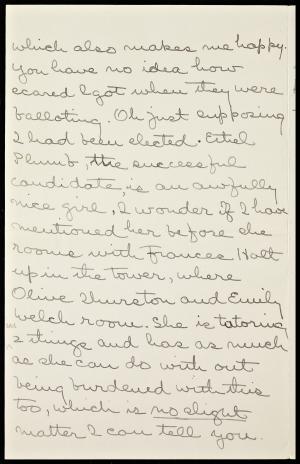 which also makes me happy.
You have no idea how
scared I got when they were
balloting. Oh just supposing
I had been elected. Ethel
Plumb, the successful
candidate, is an awfully
nice girl, I wonder if I have
mentioned her before she
rooms with Frances Holt
up in the tower, where
Olive Thurston and Emily
Welch room. She is tutoring
2 things and has as much
as she can do with out
being burdened with this
too, which is no slight
matter I can tell you.